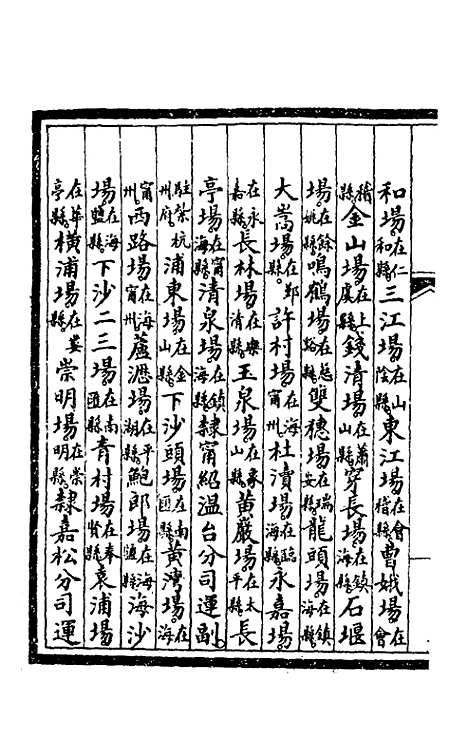 和場在仁和縣三江場在山陰縣東江場在會稽縣曹娥場在會
稽縣金山場在上虞縣錢清場在蕭山縣穿長場在鎮海縣石堰
場在餘姚縣鳴鶴場在慈谿縣雙穗場在瑞安縣龍頭場在鎮海縣
大嵩場在鄞縣許村場在海甯州杜瀆場在臨海縣永嘉場
在永嘉縣長林場在樂清縣玉泉場在象山縣黃巖場在太平縣長
亭場在甯海縣清泉場在鎮海縣隸甯紹溫台分司運副
駐紮杭州府浦東場在金山縣下沙頭場在南匯縣黃灣場在海
甯州西路場在海甯州蘆瀝場在平湖縣鮑郎場在海鹽縣海沙
場在海鹽縣下沙二三場在南匯縣青村場在奉賢縣袁浦場
在華亭縣橫浦場在婁縣崇明場在崇明縣隸嘉松分司運